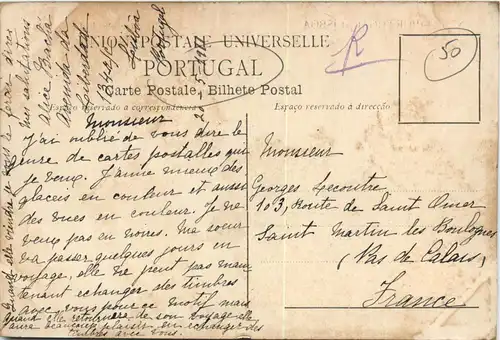 UNION POSTALE UNIVERSELLE
PORTUGAL
Carte Postale. Bilhete Postal
Espaço reservado á correspondencia
Espaço reservado á direcção
50
R
mes salutations
Alice
Avenida da
Liberdade
Lisboa
Portugal
Monsieur
J'ai oublié de vous dire le
genre de cartes postalles que
je veux. J'aime mieux des
glaceis en couleur et aussi
des vues en couleur. Je ne
veux pas en noires. Ma soeur
va passer quelques jours en
voyage, elle ne peut pas main
tenant echanger des timbres
avec vous pour ce motif mais
Quand elle retournera de son voyage elle
aura beaucoup plaisir en echanger des
timbres avec vous.
Monsieur
Georges Lecoutre
103, Route de Saint Omer
Saint Martin les Boulognes
(Pas de Calais)
France